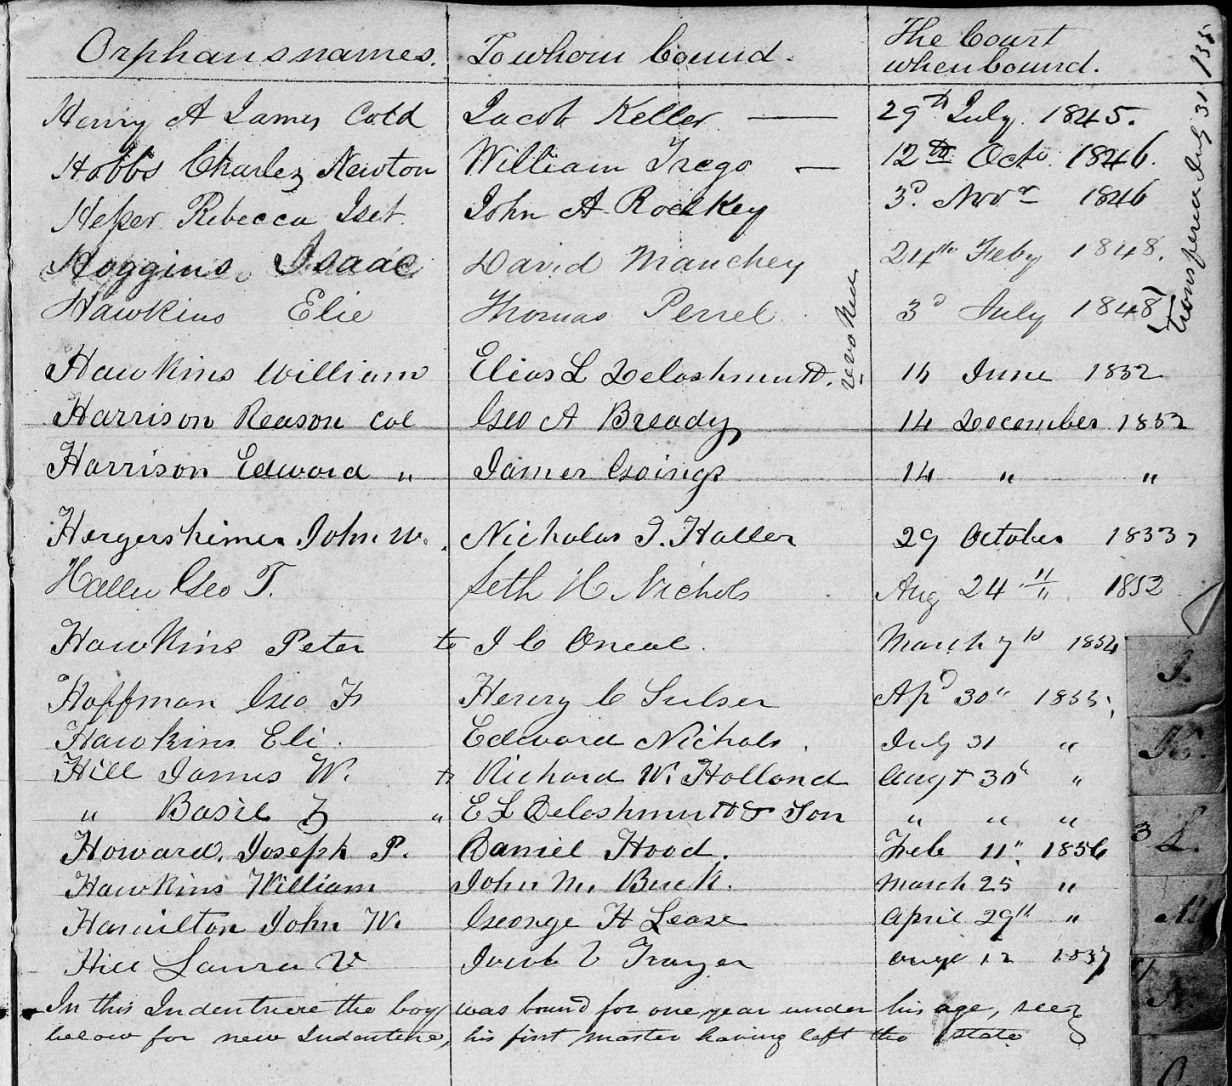 Orphans names. To whom bound. The Court when bound.
Henry A James Cold Jacob Keller — 29th July 1845.
Hobbs Charles Newton William Trego — 12th Octo. 1846.
Rebecca John A Rodkey 3d Novr 1846
Hoggins Isaac David Manchey 24th Feby 1848.
Hawkins Elie Thomas Perrel 3d July 1848
revoked
transferred July 31 1355
Hawkins William Elias L Delashmutt. 14 June 1852
Harrison Reason Col Geo A Bready 14 December 1852
Harrison Edward " James Goings 14 " "
Hergersheimer John W. Nicholas T. Haller 29 October 1853
Haller Geo T. Seth H Nichols Aug 24 " 1852
Hawkins Peter to J C Oneal. March 7th 1854
Hoffman Geo F Henry C Sulser Apd 30" 1855
Hawkins Eli. Edward Nichols. July 31 "
Hill James W. to Richard W. Holland Augt 30th "
" Basil Z " E L Delashmutt & Son " " "
Howard, Joseph P. Daniel Hood. Feb 11" 1856
Hawkins William John M. Buck. March 25 "
Hamilton John W. George H Lease April 29th "
Hill Laura V Jacob V Trayer Augt 12 1857
In this Indenture the boy was bound for one year under his age, see
below for new Indenture, his first master having left the state
J.
K.
3 L.
M
N.